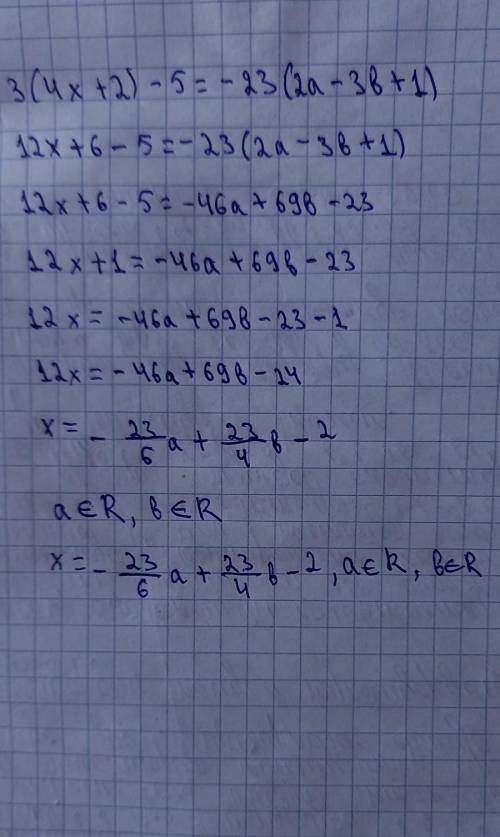 3(4x+2)-5=-23(2a-3b+1)
12x+6-5=-23(2a-3b+1)
12x+6-5=-46a+69b-23
12x+1=-46a+69b-23
12x=-46a+69b-23-1
12x=-46a+69b-24
x=-23/6a+23/4b-2
a∈R, b∈R
x=-23/6a+23/4b-2, a∈R, b∈R